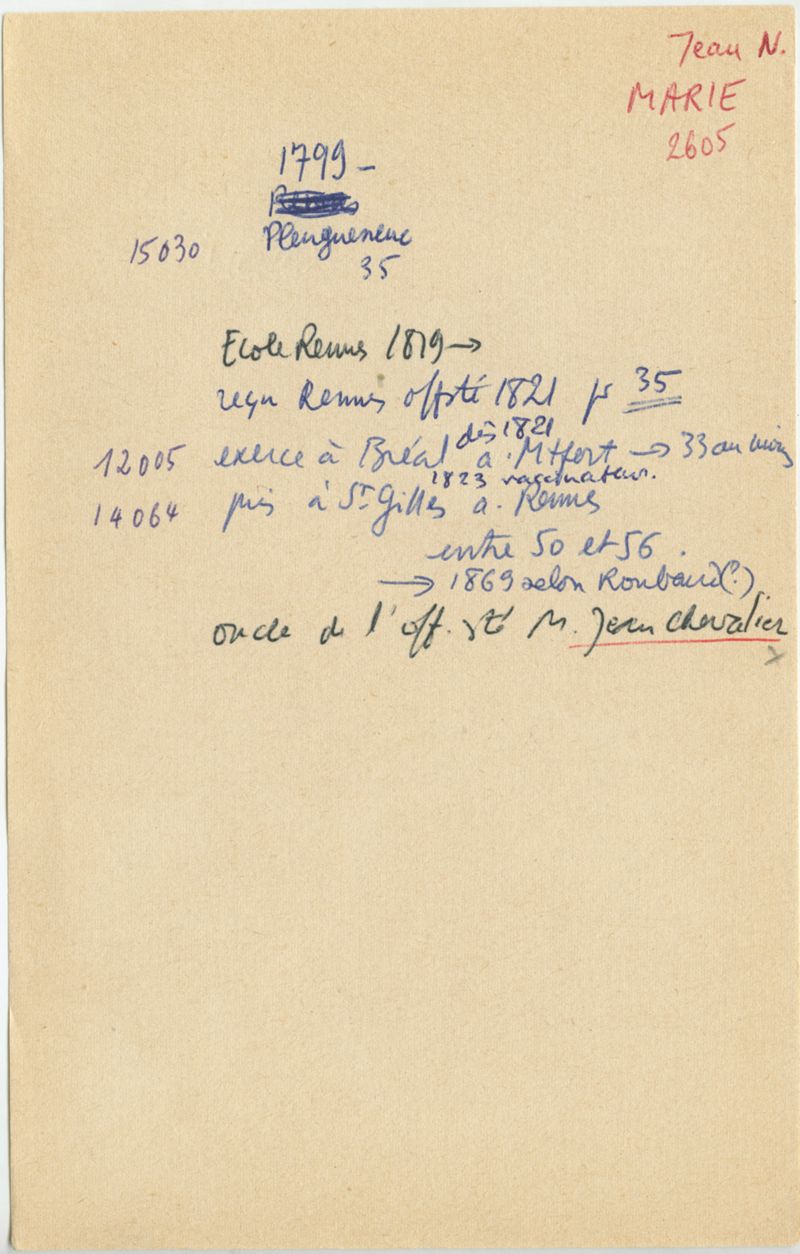 Jean N.
MARIE
2605
1799 –
15030 Pleugueneuc
35
Ecole Rennes 1819 →
reçu Rennes off sté 1821 pr 35
dès 1821
12005 exerce à Bréal a. Mtfort → 33 au moins
1823 vaccinateur.
14064 puis à St Gilles a. Rennes
entre 50 et 56.
→ 1869 selon Roubaud (?)
oncle de l'off. sté M. Jean Chevalier